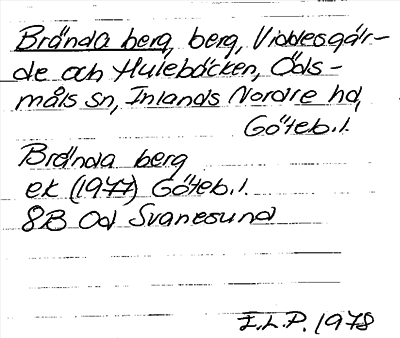 Brända berg, berg, Viddesgär-
de och Hulebäcken, Öds-
måls sn, Inlands Nordre hd,
Göteb.l.
Brända berg
ek (1977) Göteb.l.
8B Od Svanesund
I.L.P. 1978